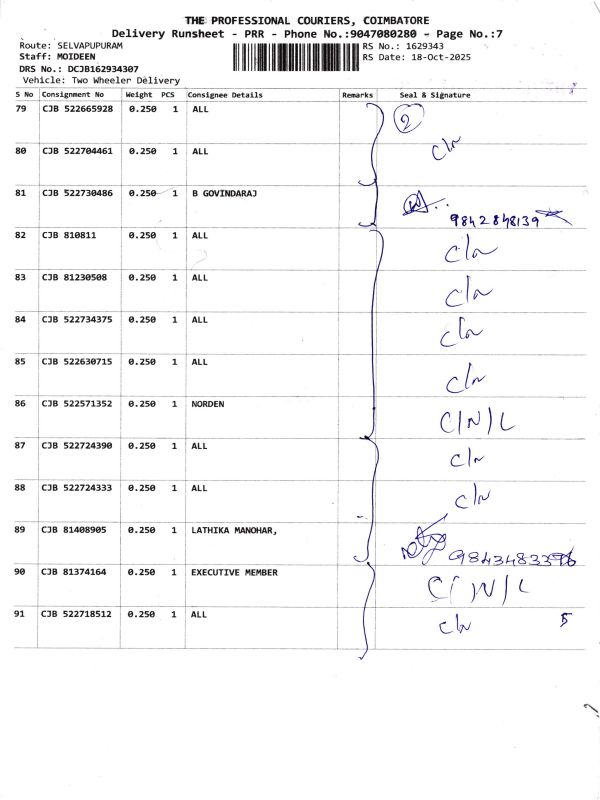 THE PROFESSIONAL COURIERS, COIMBATORE
Delivery Runsheet - PRR - Phone No.:9047080280 - Page No.:7
Route: SELVAPUPURAM RS No.: 1629343
Staff: MOIDEEN RS Date: 18-Oct-2025
DRS No.: DCJB162934307
Vehicle: Two Wheeler Delivery
S No Consignment No Weight PCS Consignee Details Remarks Seal & Signature
79 CJB 522665928 0.250 1 ALL 2
80 CJB 522704461 0.250 1 ALL
81 CJB 522730486 0.250 1 B GOVINDARAJ
9842848139
82 CJB 810811 0.250 1 ALL
83 CJB 81230508 0.250 1 ALL
84 CJB 522734375 0.250 1 ALL
85 CJB 522630715 0.250 1 ALL
86 CJB 522571352 0.250 1 NORDEN C/N/L
87 CJB 522724390 0.250 1 ALL
88 CJB 522724333 0.250 1 ALL
89 CJB 81408905 0.250 1 LATHIKA MANOHAR,
90 CJB 81374164 0.250 1 EXECUTIVE MEMBER C/N/L
91 CJB 522718512 0.250 1 ALL 5